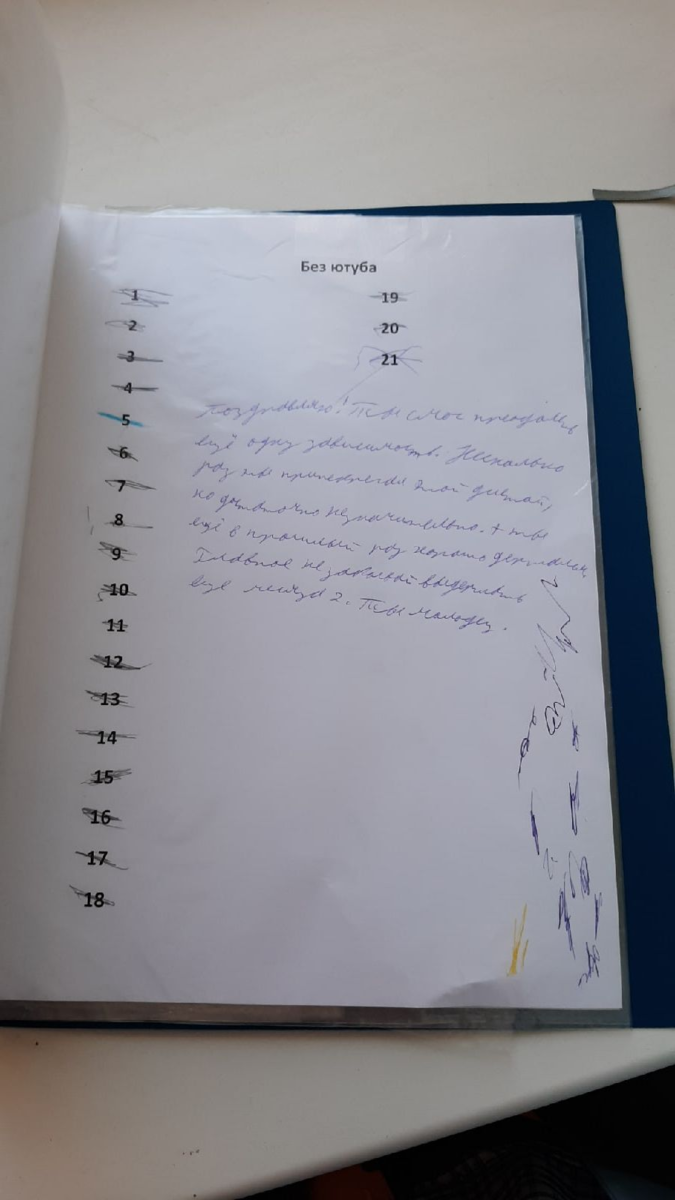 Без ютуба
1 19
2 20
3 21
4
5
6
7
8
9
10
11
12
13
14
15
16
17
18
поздравляю! Ты смог преодолеть
ещё одну зависимость. Несколько
раз ты пренебрегал этой
но достаточно незначительно. + ты
ещё в прошлый раз хорошо держался.
Главное не забывай выдержать
ещё месяца 2. Ты молодец.